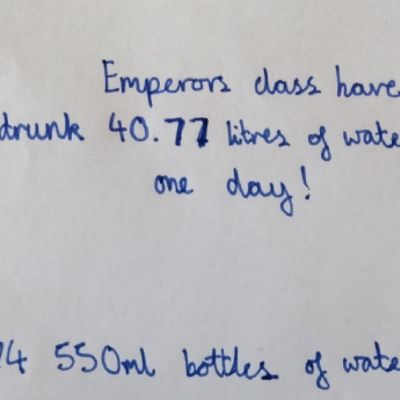 Emperors class have
drunk 40.77 litres of wate
one day!
74 550ml bottles of wate